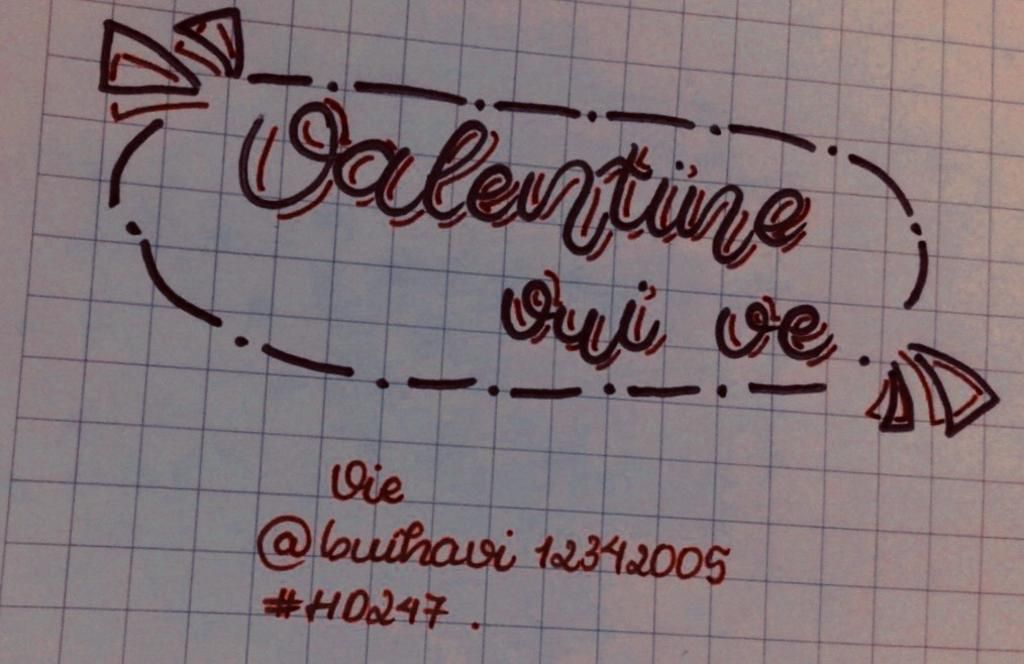 Valentine
vui ve
Vie
@buihavi 12342005
#HD247.